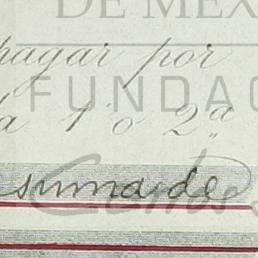 DE MÉX
pagar por
FUNDAC
la 1ª ó 2ª
suma de